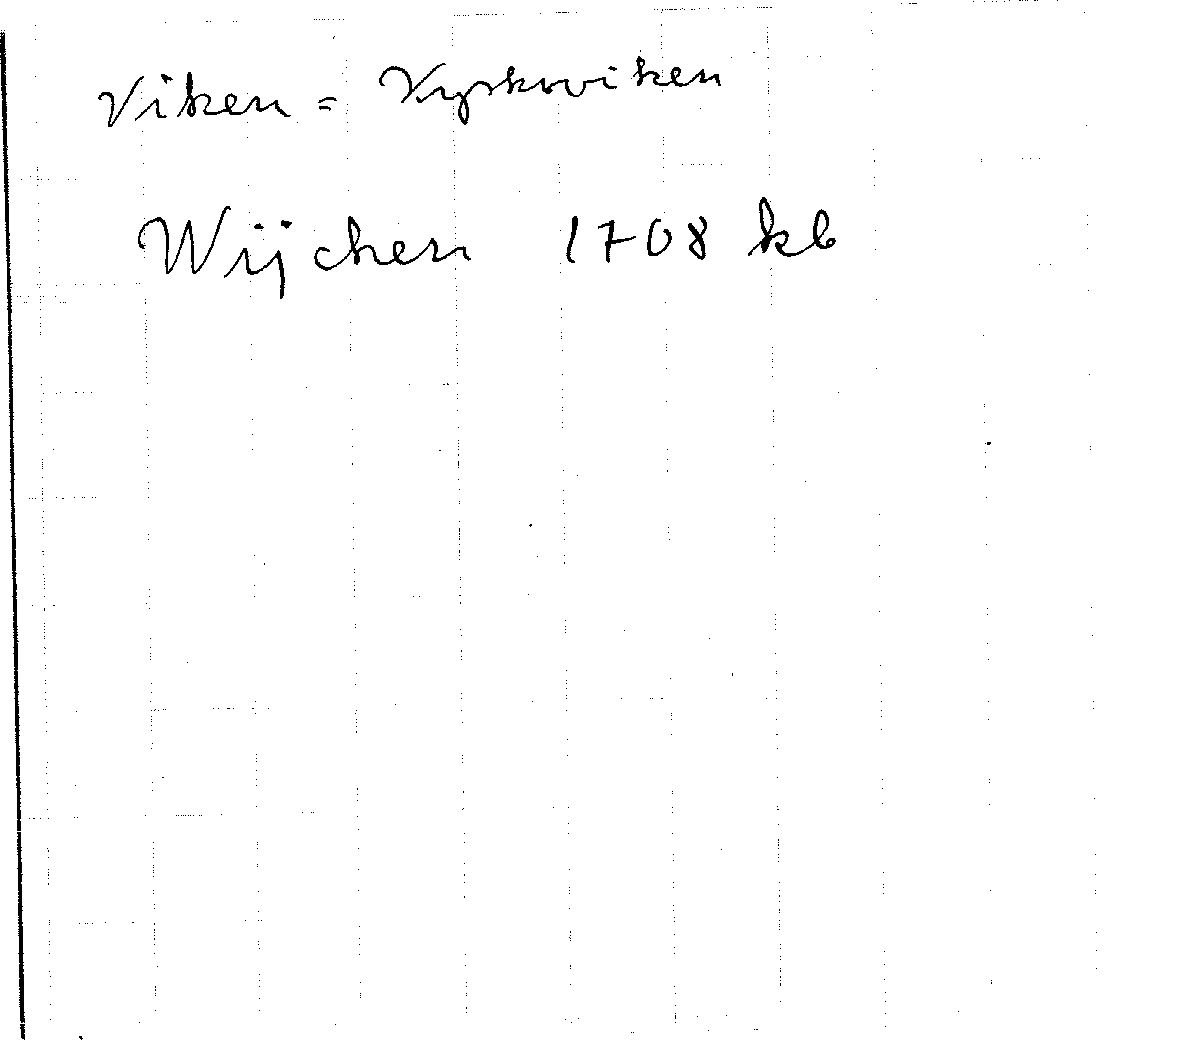 Viken = Kyrkviken
Wijchen 1708 kb